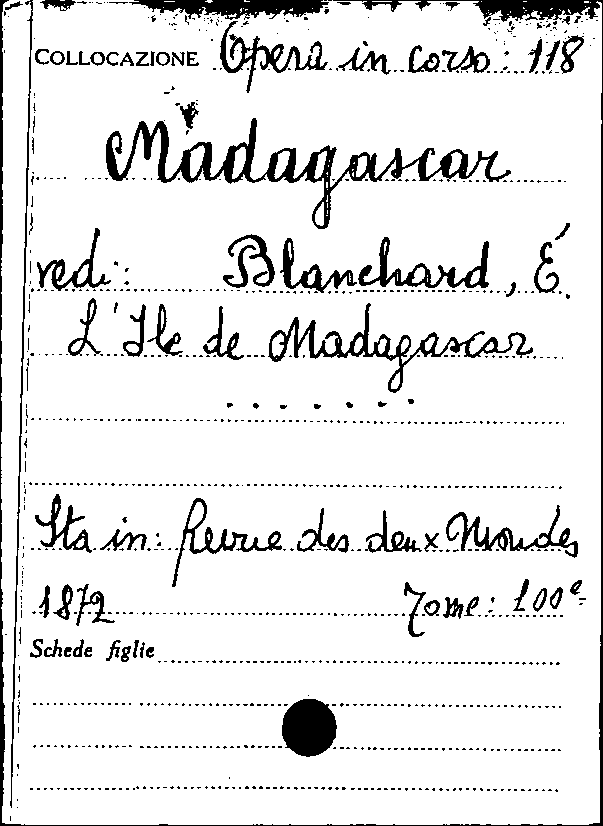 COLLOCAZIONE Opera in corso: 118
Madagascar
vedi: Blanchard, É.
L'Ile de Madagascar
.......
Sta in: Revue des deux Mondes
1872 Tome: 100e
Schede figlie